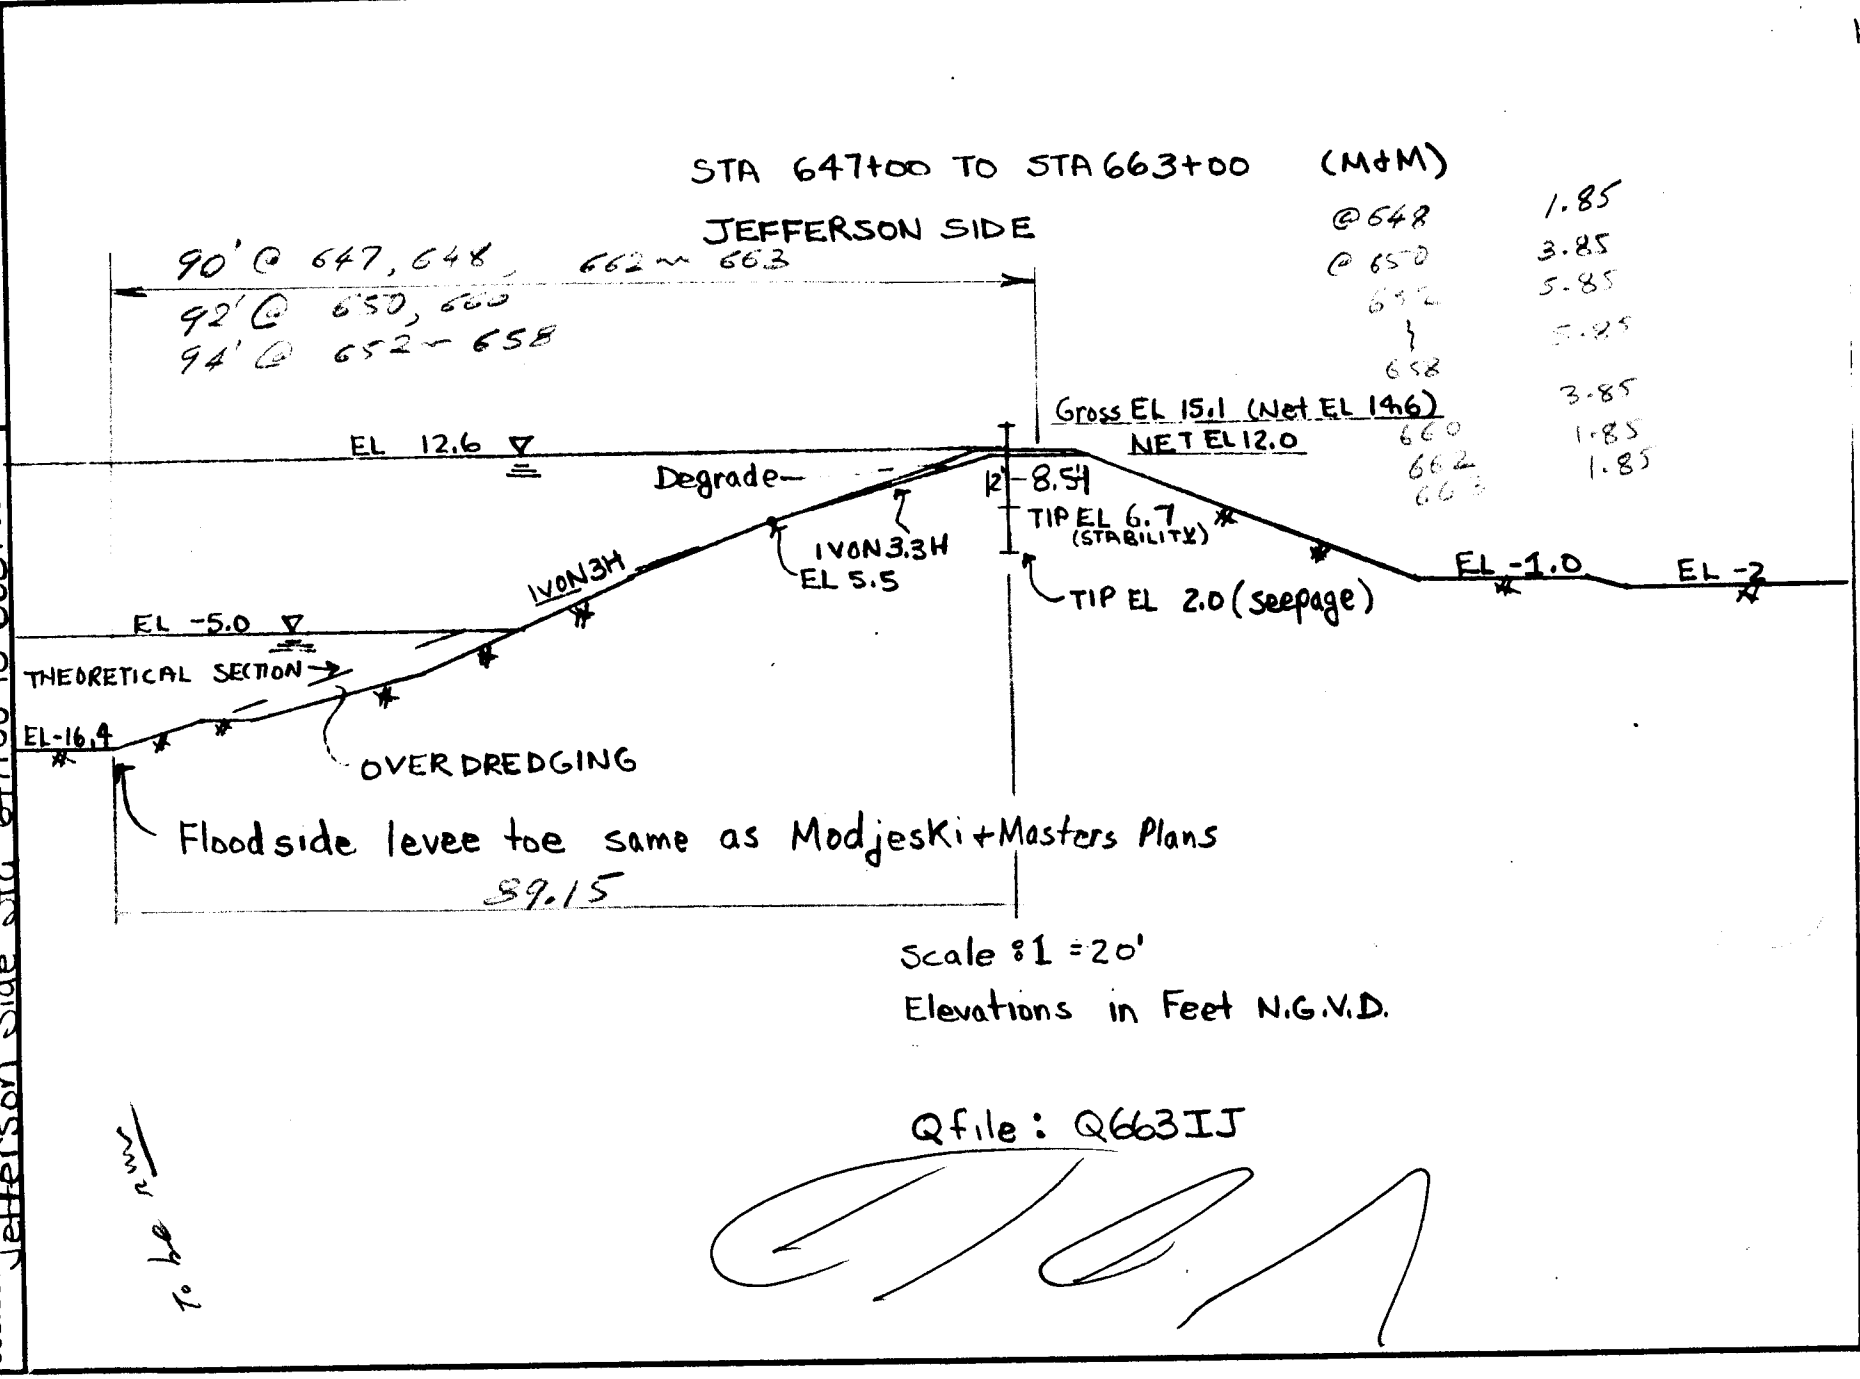 STA 647+00 TO STA 663+00 (M+M)
JEFFERSON SIDE
@ 648 1.85
@ 650 3.85
652 5.85
658 5.85
660 3.85
662 1.85
663 1.85
90' @ 647, 648, 662 ~ 663
92' @ 650, 660
94' @ 652 ~ 658
Gross EL 15.1 (Net EL 14.6)
NET EL 12.0
EL 12.6
Degrade
2' 8.5'
TIP EL 6.7
(STABILITY)
1V ON 3.3H
EL 5.5
1V ON 3H
TIP EL 2.0 (seepage)
EL -1.0
EL -2
EL -5.0
THEORETICAL SECTION
EL -16.4
OVER DREDGING
Floodside levee toe same as Modjeski + Masters Plans
89.15
Scale : 1 = 20'
Elevations in Feet N.G.V.D.
Qfile: Q663IJ
To be run
Jefferson Side Sta